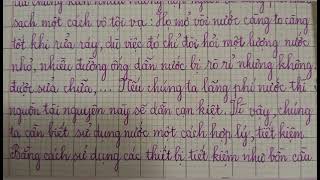 sạch một cách vô tội vạ: Họ mở vòi nước càng to càng
tốt khi rửa ráy, dù việc đó chỉ đòi hỏi một lượng nước
nhỏ, nhiều đường ống dẫn nước bị rò rỉ nhưng không
được sửa chữa,... Nếu chúng ta lãng phí nước thì
nguồn tài nguyên này sẽ dần cạn kiệt. Vì vậy, chúng
ta cần biết sử dụng nước một cách hợp lý, tiết kiệm
Bằng cách sử dụng các thiết bị tiết kiệm như bồn cầu